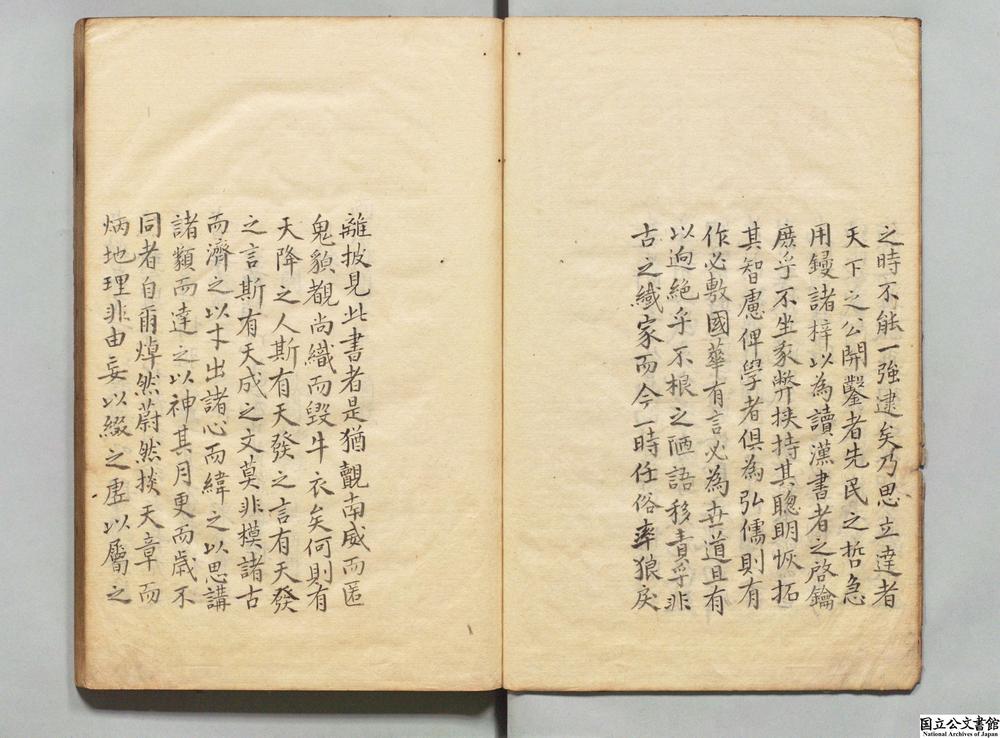 之時不能一強逮矣乃思立達者
天下之公開鑿者先民之哲急
用鋟諸梓以為讀漢書者之啓鑰
庶乎不坐家弊挾持其聰明恢拓
其智慮俾學者俱為弘儒則有
作必敷國華有言必為世道且有
以逈絶乎不根之陋語移責乎非
古之纎家而今一時任俗率狼戾
離披見此書者是猶觀南威而匿
鬼貌覩尚織而毀牛衣矣何則有
天降之人斯有天發之言有天發
之言斯有天成之文莫非模諸古
而濟之以卞出諸心而緯之以思講
諸類而達之以神其月更而歲不
同者自爾焯然蔚然掞天章而
炳地理非由妄以綴之虛以屬之
国立公文書館
National Archives of Japan